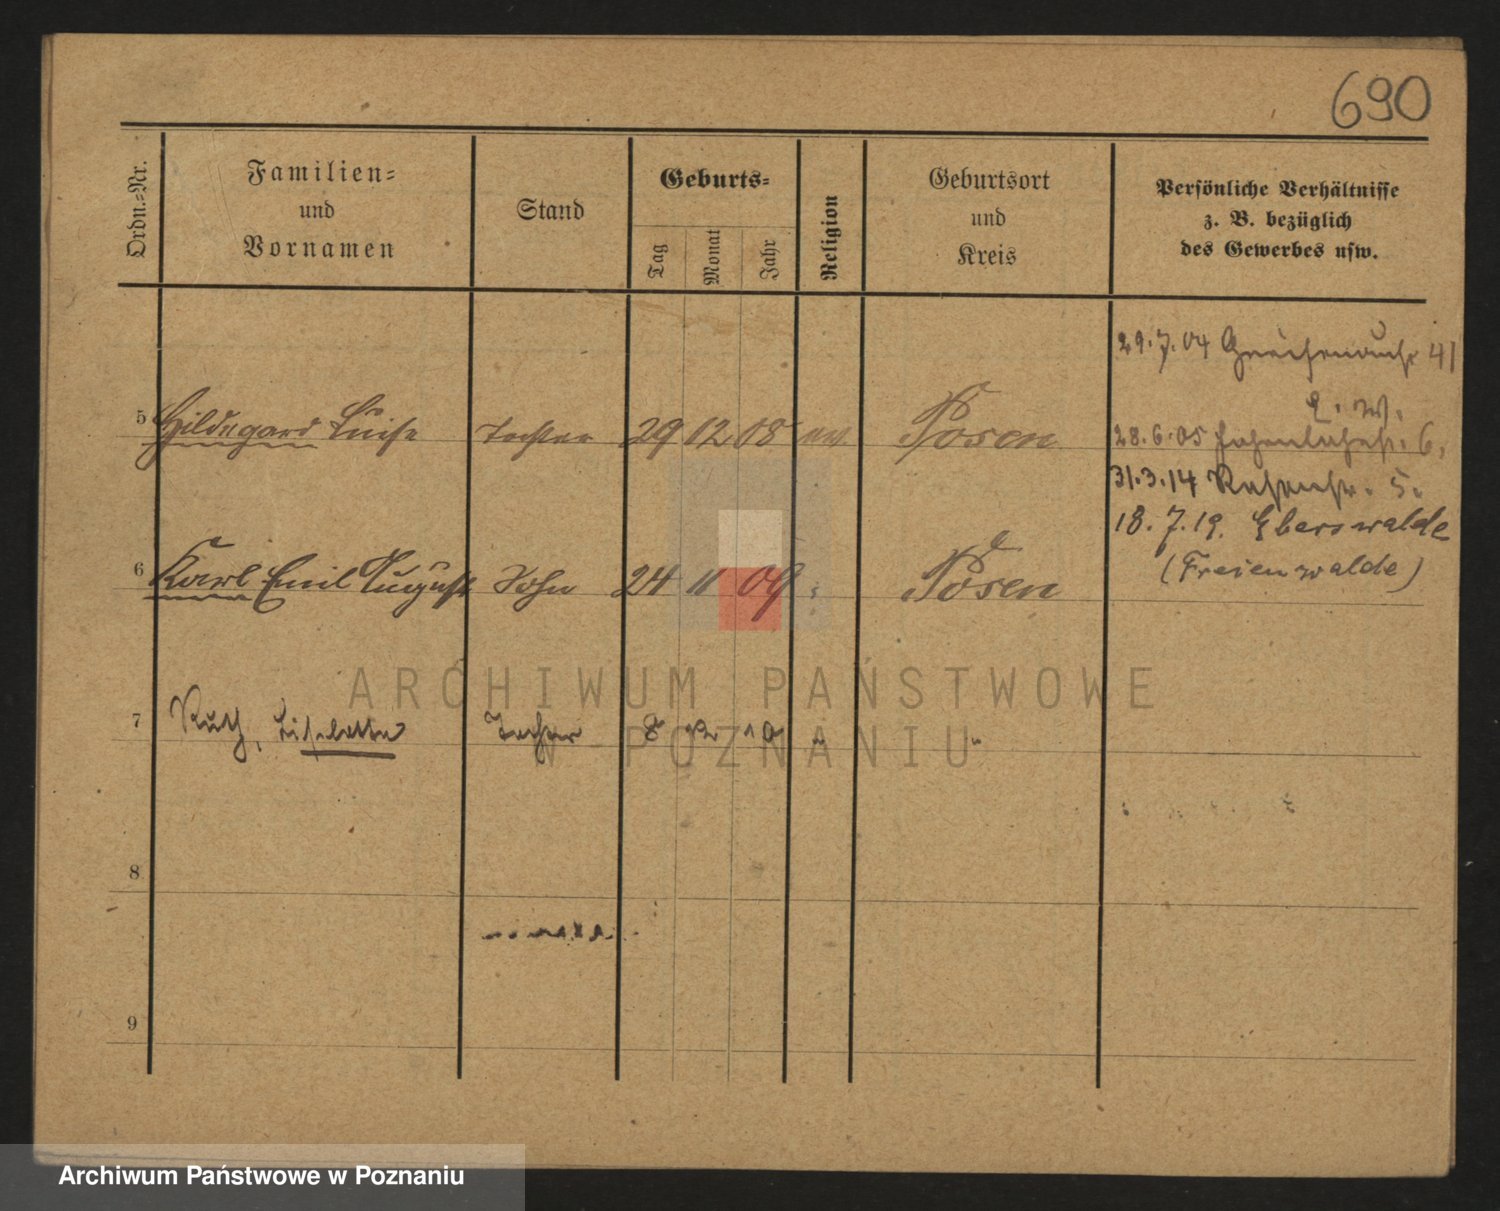 690
Ordn.-Nr.
Familien-
und
Vornamen
Stand
Geburts-
Tag
Monat
Jahr
Religion
Geburtsort
und
Kreis
Persönliche Verhältnisse
z. B. bezüglich
des Gewerbes usw.
29.7.04 Gneisenaustr 41
5 Hildegard Luise Tochter 29 12 08 ev. Posen
28.6.05 6.
31.3.14 5.
18.7.19. Eberswalde
(Freienwalde)
6 Karl Emil August Sohn 24 11 09 Posen
7 Ruth, Liselotte Tochter 8
8
9
ARCHIWUM PAŃSTWOWE
W POZNANIU
Archiwum Państwowe w Poznaniu